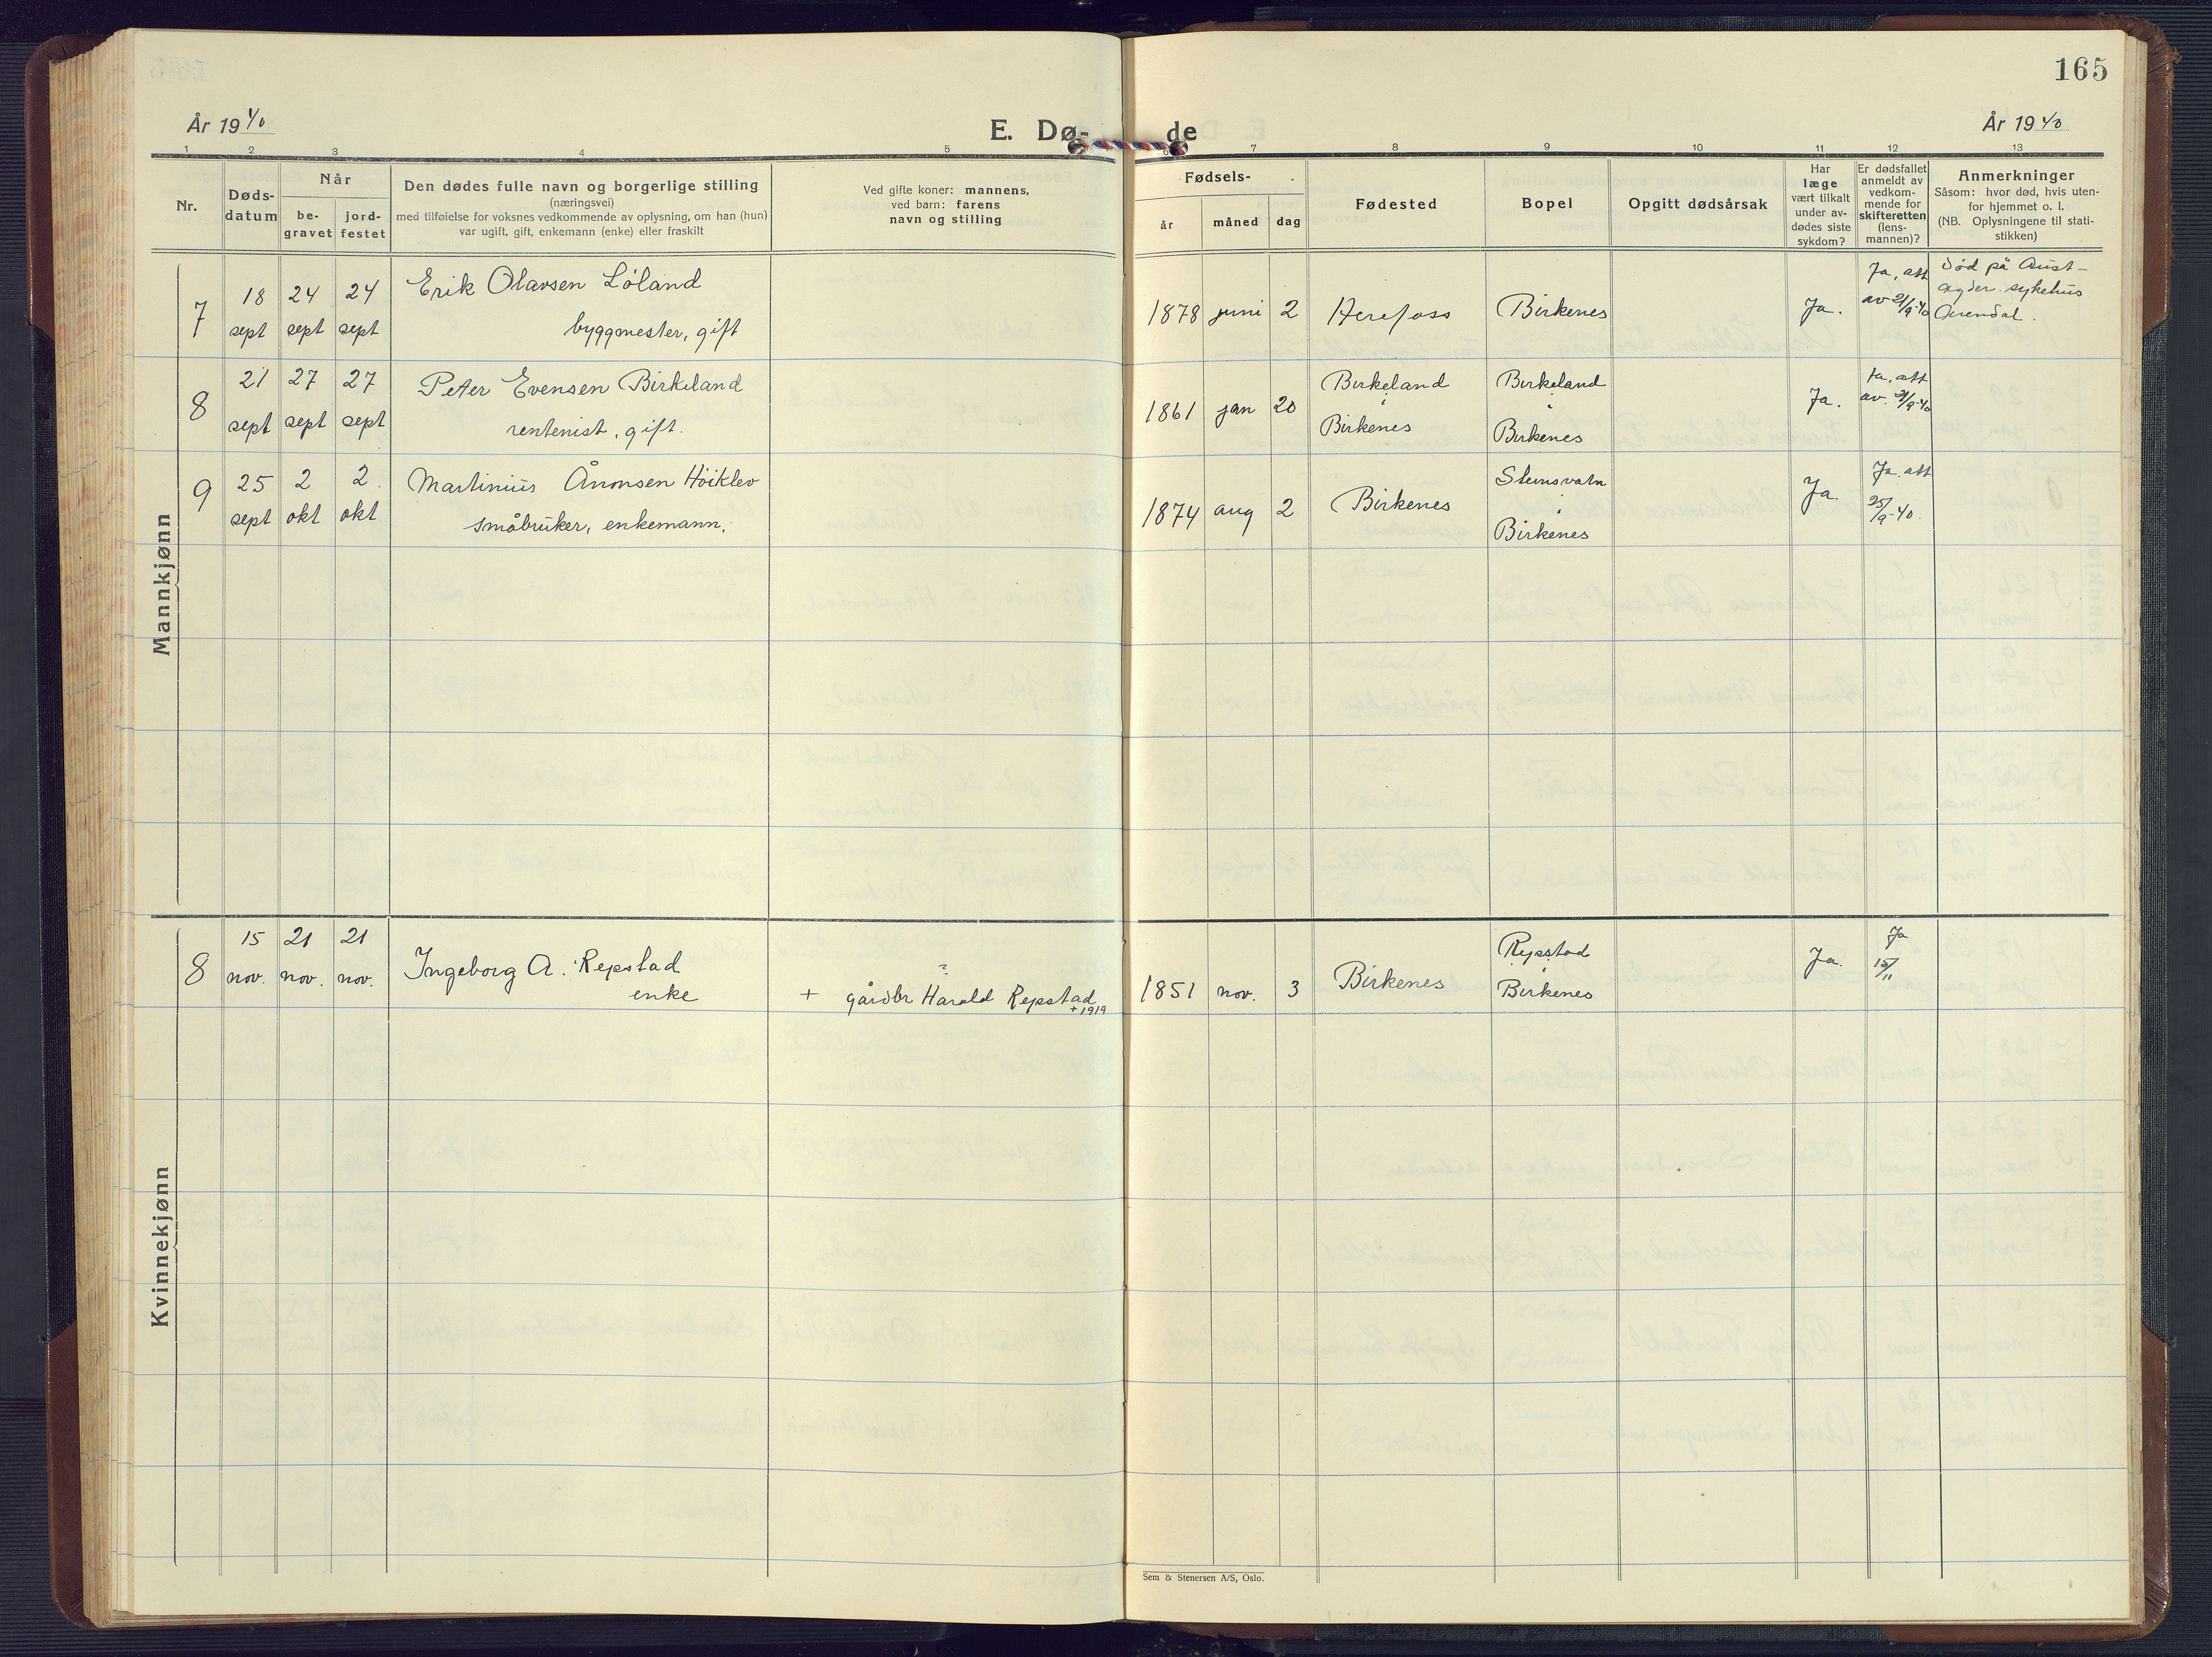 165
År 1940
E. Dø-
de
År 1940
1 2 3 4 5 7 8 9 10 11 12 13
Nr.
Døds-
datum
Når
be-
gravet
jord-
festet
Den dødes fulle navn og borgerlige stilling
(næringsvei)
med tilføielse for voksnes vedkommende av oplysning, om han (hun)
var ugift, gift, enkemann (enke) eller fraskilt
Ved gifte koner: mannens,
ved barn: farens
navn og stilling
Fødsels-
år
måned
dag
Fødested
Bopel
Opgitt dødsårsak
Har
læge
vært tilkalt
under av-
dødes siste
sykdom?
Er dødsfallet
anmeldt av
vedkom-
mende for
skifteretten
(lens-
mannen)?
Anmerkninger
Såsom: hvor død, hvis uten-
for hjemmet o. l.
(NB. Oplysningene til stati-
stikken)
Mannkjønn
7
18
sept
24
sept
24
sept
Erik Olavsen Løland
byggmester, gift
1878 juni 2
Herefoss
Birkenes
Ja.
Ja, att
av 21/9-40
Død på Aust-
agder sykehus
Arendal.
8
21
sept
27
sept
27
sept
Peter Evensen Birkeland
rentenist, gift.
1861 jan 20
Birkeland
i
Birkenes
Birkeland
i
Birkenes
Ja.
Ja, att
av. 21/9-40
9
25
sept
2
okt
2
okt
Martinius Ånonsen Høiklev
småbruker, enkemann.
1874 aug 2
Birkenes
Steinsvatn
i
Birkenes
Ja.
Ja. att
25/9-40.
Kvinnekjønn
8
15
nov.
21
nov.
21
nov.
Ingeborg A. Repstad
enke
?
+ gårdbr Harald Repstad
+1919
1851 nov. 3
Birkenes
Repstad
i
Birkenes
Ja.
Ja
15/11
Sem & Stenersen A/S, Oslo.